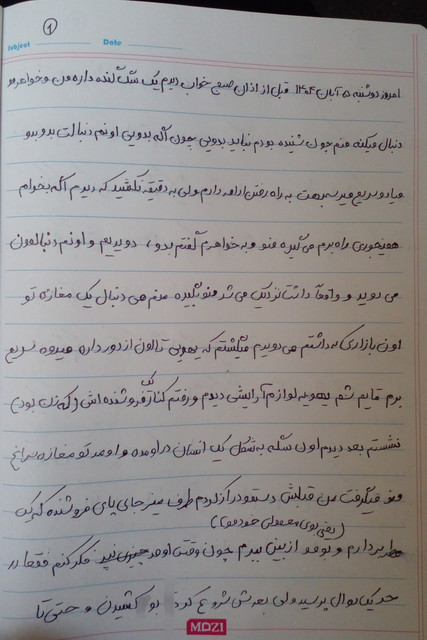 ①
Subject Date
امروز دوشنبه ۵ آبان ۱۴۰۴ قبل از اذان صبح خواب دیدم یک سگ گنده داره من و خواهرمو
دنبال میکنه منم چون شنیده بودم نباید بدویی چون اگه بدویی اونم دنبالت بدوبدو
میاد و سریع میرسه بهت به راه رفتن ادامه دارم ولی به دقیقه نکشید که دیدم اگه بخوام
همینجوری راه برم می گیره منو و به خواهرم گفتم بدو، دویدیم و اونم دنبالمون
می دوید و واقعاً داشت نزدیک می شد منو بگیره منم هی دنبال یک مغازه تو
اون بازاری که داشتم می دویدم میگشتم که یهویی تا اون از دور داره میدوه سریع
برم قایم شم یهو یه لوازم آرایشی دیدم و رفتم کنار یک فروشنده اش (که زن بود)
نشستم بعد دیدم اون سگه به شکل یک انسان در اومده و اومد تو مغازه سراغ
منو میگرفت من قبلش دستمو دراز کردم طرف میز جای پای فروشنده که یک
عطر بردارم و بومو از بین ببرم (یعنی بوی معمولی خودمو) چون وقتی اومد فکر کنم فقط در
حد یک سوال پرسید ولی بعدش شروع کرد بو کشیدن و حتی تا
MDZI